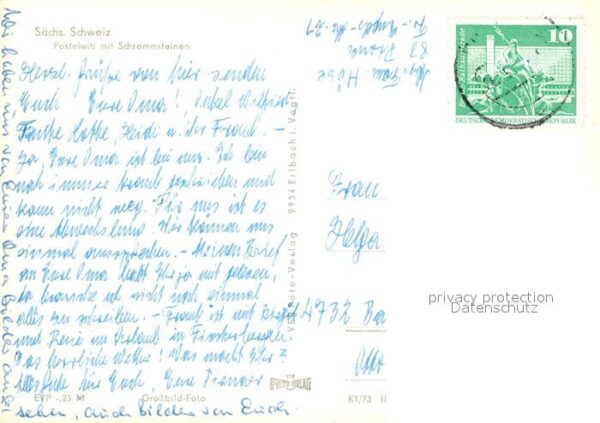 Sächs. Schweiz
Postelwitz mit Schrammsteinen
Herzl. Grüße von hier senden
Euch Eure Oma! Onkel Wilfried
Tante Heike, Heidi u. ihr Frank. –
Ja Eure Oma ist bei uns. Ich bin
noch immer krank geschrieben und
kann nicht weg. Für uns ist es
eine Abwechslung. Wir können uns
einmal aussprechen. – Meinen Brief
an Eure Oma habt Ihr ja mit gelesen,
da brauche ich nicht noch einmal
alles zu schreiben. – Frank ist mit
und René im Urlaub in
Das herrliche Wetter! Was macht Ihr?
Alles Gute für Euch, Eure
Wir haben uns von Eurer Oma Bilder ange
sehen, auch Bilder von Euch.
EVP -,25 M
Großbild-Foto
K1/73
VEB Foto-Verlag 9934 Erlbach i. Vogtl.
FOTO VERLAG
83 Pirna
10
DEUTSCHE DEMOKRATISCHE REPUBLIK
Frau
Helga
4732 Ba
Otto
privacy protection
Datenschutz